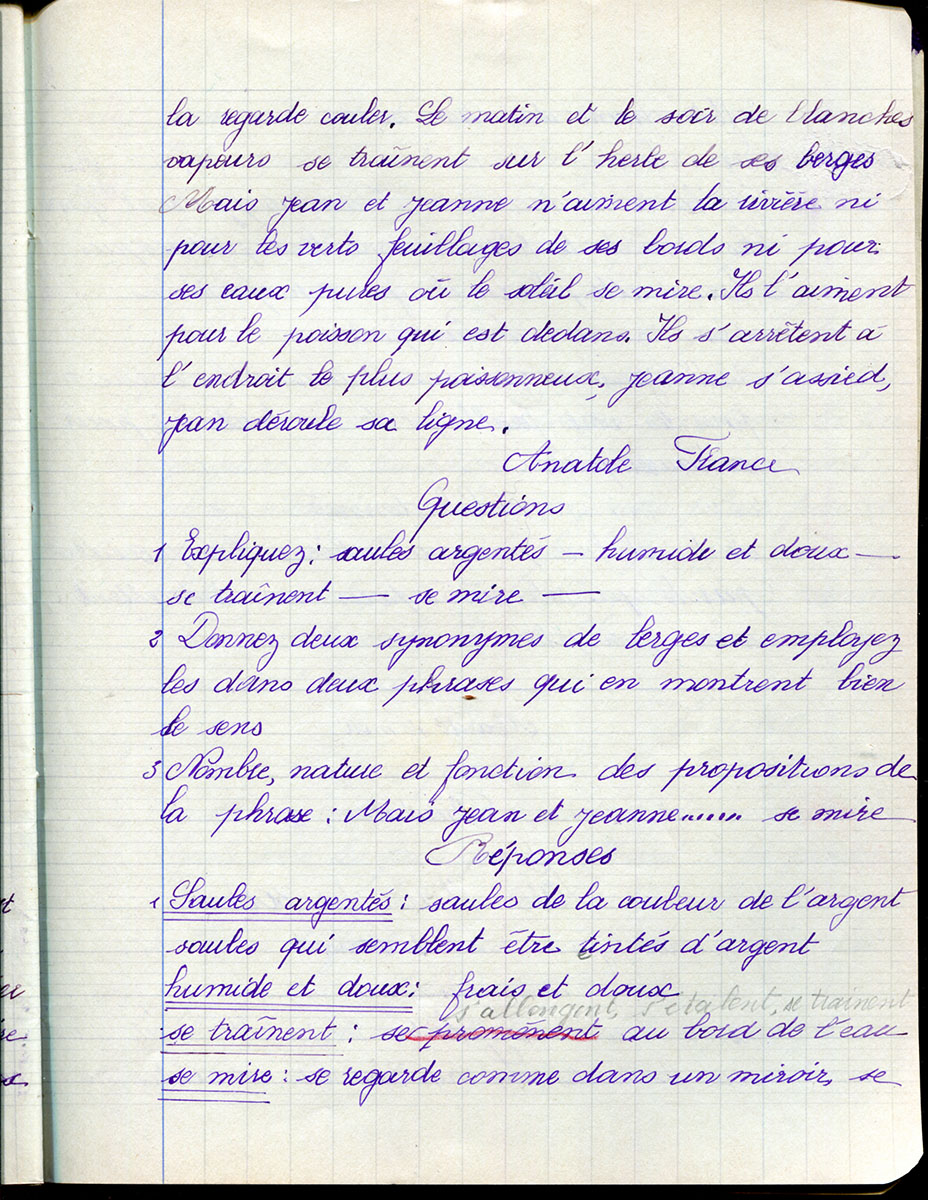 la regarde couler. Le matin et le soir de blanches
vapeurs se traînent sur l'herbe de ses berges
Mais Jean et Jeanne n'aiment la rivière ni
pour les verts feuillages de ses bords ni pour
ses eaux pures où le soleil se mire. Ils l'aiment
pour le poisson qui est dedans. Ils s'arrêtent à
l'endroit le plus poissonneux, Jeanne s'assied,
Jean déroule sa ligne.
Anatole France
Questions
1 Expliquez : saules argentés – humide et doux –
se traînent — se mire —
2 Donnez deux synonymes de berges et employez
les dans deux phrases qui en montrent bien
le sens
3 Nombre, nature et fonction des propositions de
la phrase : Mais Jean et Jeanne....... se mire
Réponses
1 Saules argentés : saules de la couleur de l'argent
saules qui semblent être teintés d'argent
humide et doux : frais et doux
s'allongent, s'étalent, se trainent
se traînent : se promènent au bord de l'eau
se mire : se regarde comme dans un miroir, se